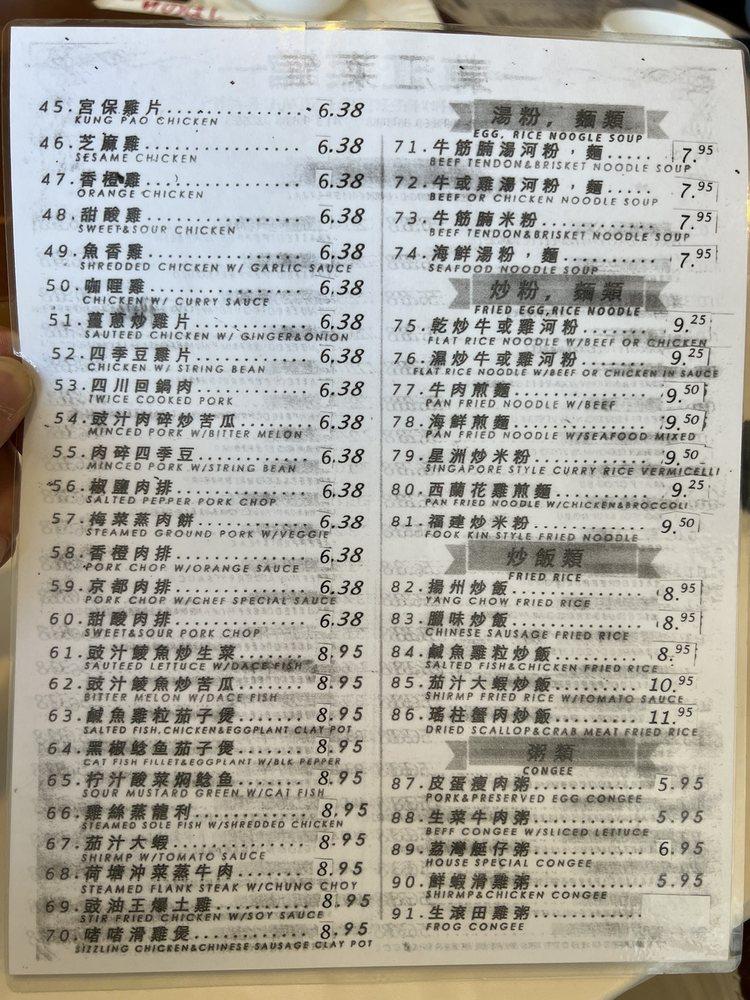 45.宮保雞片 6.38
KUNG PAO CHICKEN
46.芝麻雞 6.38
SESAME CHICKEN
47.香橙雞 6.38
ORANGE CHICKEN
48.甜酸雞 6.38
SWEET&SOUR CHICKEN
49.魚香雞 6.38
SHREDDED CHICKEN W/ GARLIC SAUCE
50.咖哩雞 6.38
CHICKEN W/ CURRY SAUCE
51.薑蔥炒雞片 6.38
SAUTEED CHICKEN W/ GINGER&ONION
52.四季豆雞片 6.38
CHICKEN W/ STRING BEAN
53.四川回鍋肉 6.38
TWICE COOKED PORK
54.豉汁肉碎炒苦瓜 6.38
MINCED PORK W/BITTER MELON
55.肉碎四季豆 6.38
MINCED PORK W/STRING BEAN
56.椒鹽肉排 6.38
SALTED PEPPER PORK CHOP
57.梅菜蒸肉餅 6.38
STEAMED GROUND PORK W/VEGGIE
58.香橙肉排 6.38
PORK CHOP W/ORANGE SAUCE
59.京都肉排 6.38
PORK CHOP W/CHEF SPECIAL SAUCE
60.甜酸肉排 6.38
SWEET&SOUR PORK CHOP
61.豉汁鯪魚炒生菜 8.95
SAUTEED LETTUCE W/DACE FISH
62.豉汁鯪魚炒苦瓜 8.95
BITTER MELON W/DACE FISH
63.鹹魚雞粒茄子煲 8.95
SALTED FISH,CHICKEN&EGGPLANT CLAY POT
64.黑椒鯰魚茄子煲 8.95
CAT FISH FILLET&EGGPLANT W/BLK PEPPER
65.柠汁酸菜焖鯰鱼 8.95
SOUR MUSTARD GREEN W/CAT FISH
66.雞絲蒸龍利 8.95
STEAMED SOLE FISH W/SHREDDED CHICKEN
67.茄汁大蝦 8.95
SHIRMP W/TOMATO SAUCE
68.荷塘沖菜蒸牛肉 8.95
STEAMED FLANK STEAK W/CHUNG CHOY
69.豉油王爆土雞 8.95
STIR FRIED CHICKEN W/SOY SAUCE
70.啫啫滑雞煲 8.95
SIZZLING CHICKEN&CHINESE SAUSAGE CLAY POT
湯粉，麵類
EGG, RICE NOOGLE SOUP
71.牛筋腩湯河粉，麵 7.95
BEEF TENDON&BRISKET NOODLE SOUP
72.牛或雞湯河粉，麵 7.95
BEEF OR CHICKEN NOODLE SOUP
73.牛筋腩米粉 7.95
BEEF TENDON&BRISKET NOODLE SOUP
74.海鮮湯粉，麵 7.95
SEAFOOD NOODLE SOUP
炒粉，麵類
FRIED EGG,RICE NOODLE
75.乾炒牛或雞河粉 9.25
FLAT RICE NOODLE W/BEEF OR CHICKEN
76.濕炒牛或雞河粉 9.25
FLAT RICE NOODLE W/BEEF OR CHICKEN IN SAUCE
77.牛肉煎麵 9.50
PAN FRIED NOODLE W/BEEF
78.海鮮煎麵 9.50
PAN FRIED NOODLE W/SEAFOOD MIXED
79.星洲炒米粉 9.50
SINGAPORE STYLE CURRY RICE VERMICELLI
80.西蘭花雞煎麵 9.25
PAN FRIED NOODLE W/CHICKEN&BROCCOLI
81.福建炒米粉 9.50
FOOK KIN STYLE FRIED NOODLE
炒飯類
FRIED RICE
82.揚州炒飯 8.95
YANG CHOW FRIED RICE
83.臘味炒飯 8.95
CHINESE SAUSAGE FRIED RICE
84.鹹魚雞粒炒飯 8.95
SALTED FISH&CHICKEN FRIED RICE
85.茄汁大蝦炒飯 10.95
SHIRMP FRIED RICE W/TOMATO SAUCE
86.瑤柱蟹肉炒飯 11.95
DRIED SCALLOP&CRAB MEAT FRIED RICE
粥類
CONGEE
87.皮蛋瘦肉粥 5.95
PORK&PRESERVED EGG CONGEE
88.生菜牛肉粥 5.95
BEFF CONGEE W/SLICED LETTUCE
89.荔灣艇仔粥 6.95
HOUSE SPECIAL CONGEE
90.鮮蝦滑雞粥 5.95
SHIRMP&CHICKEN CONGEE
91.生滾田雞粥
FROG CONGEE